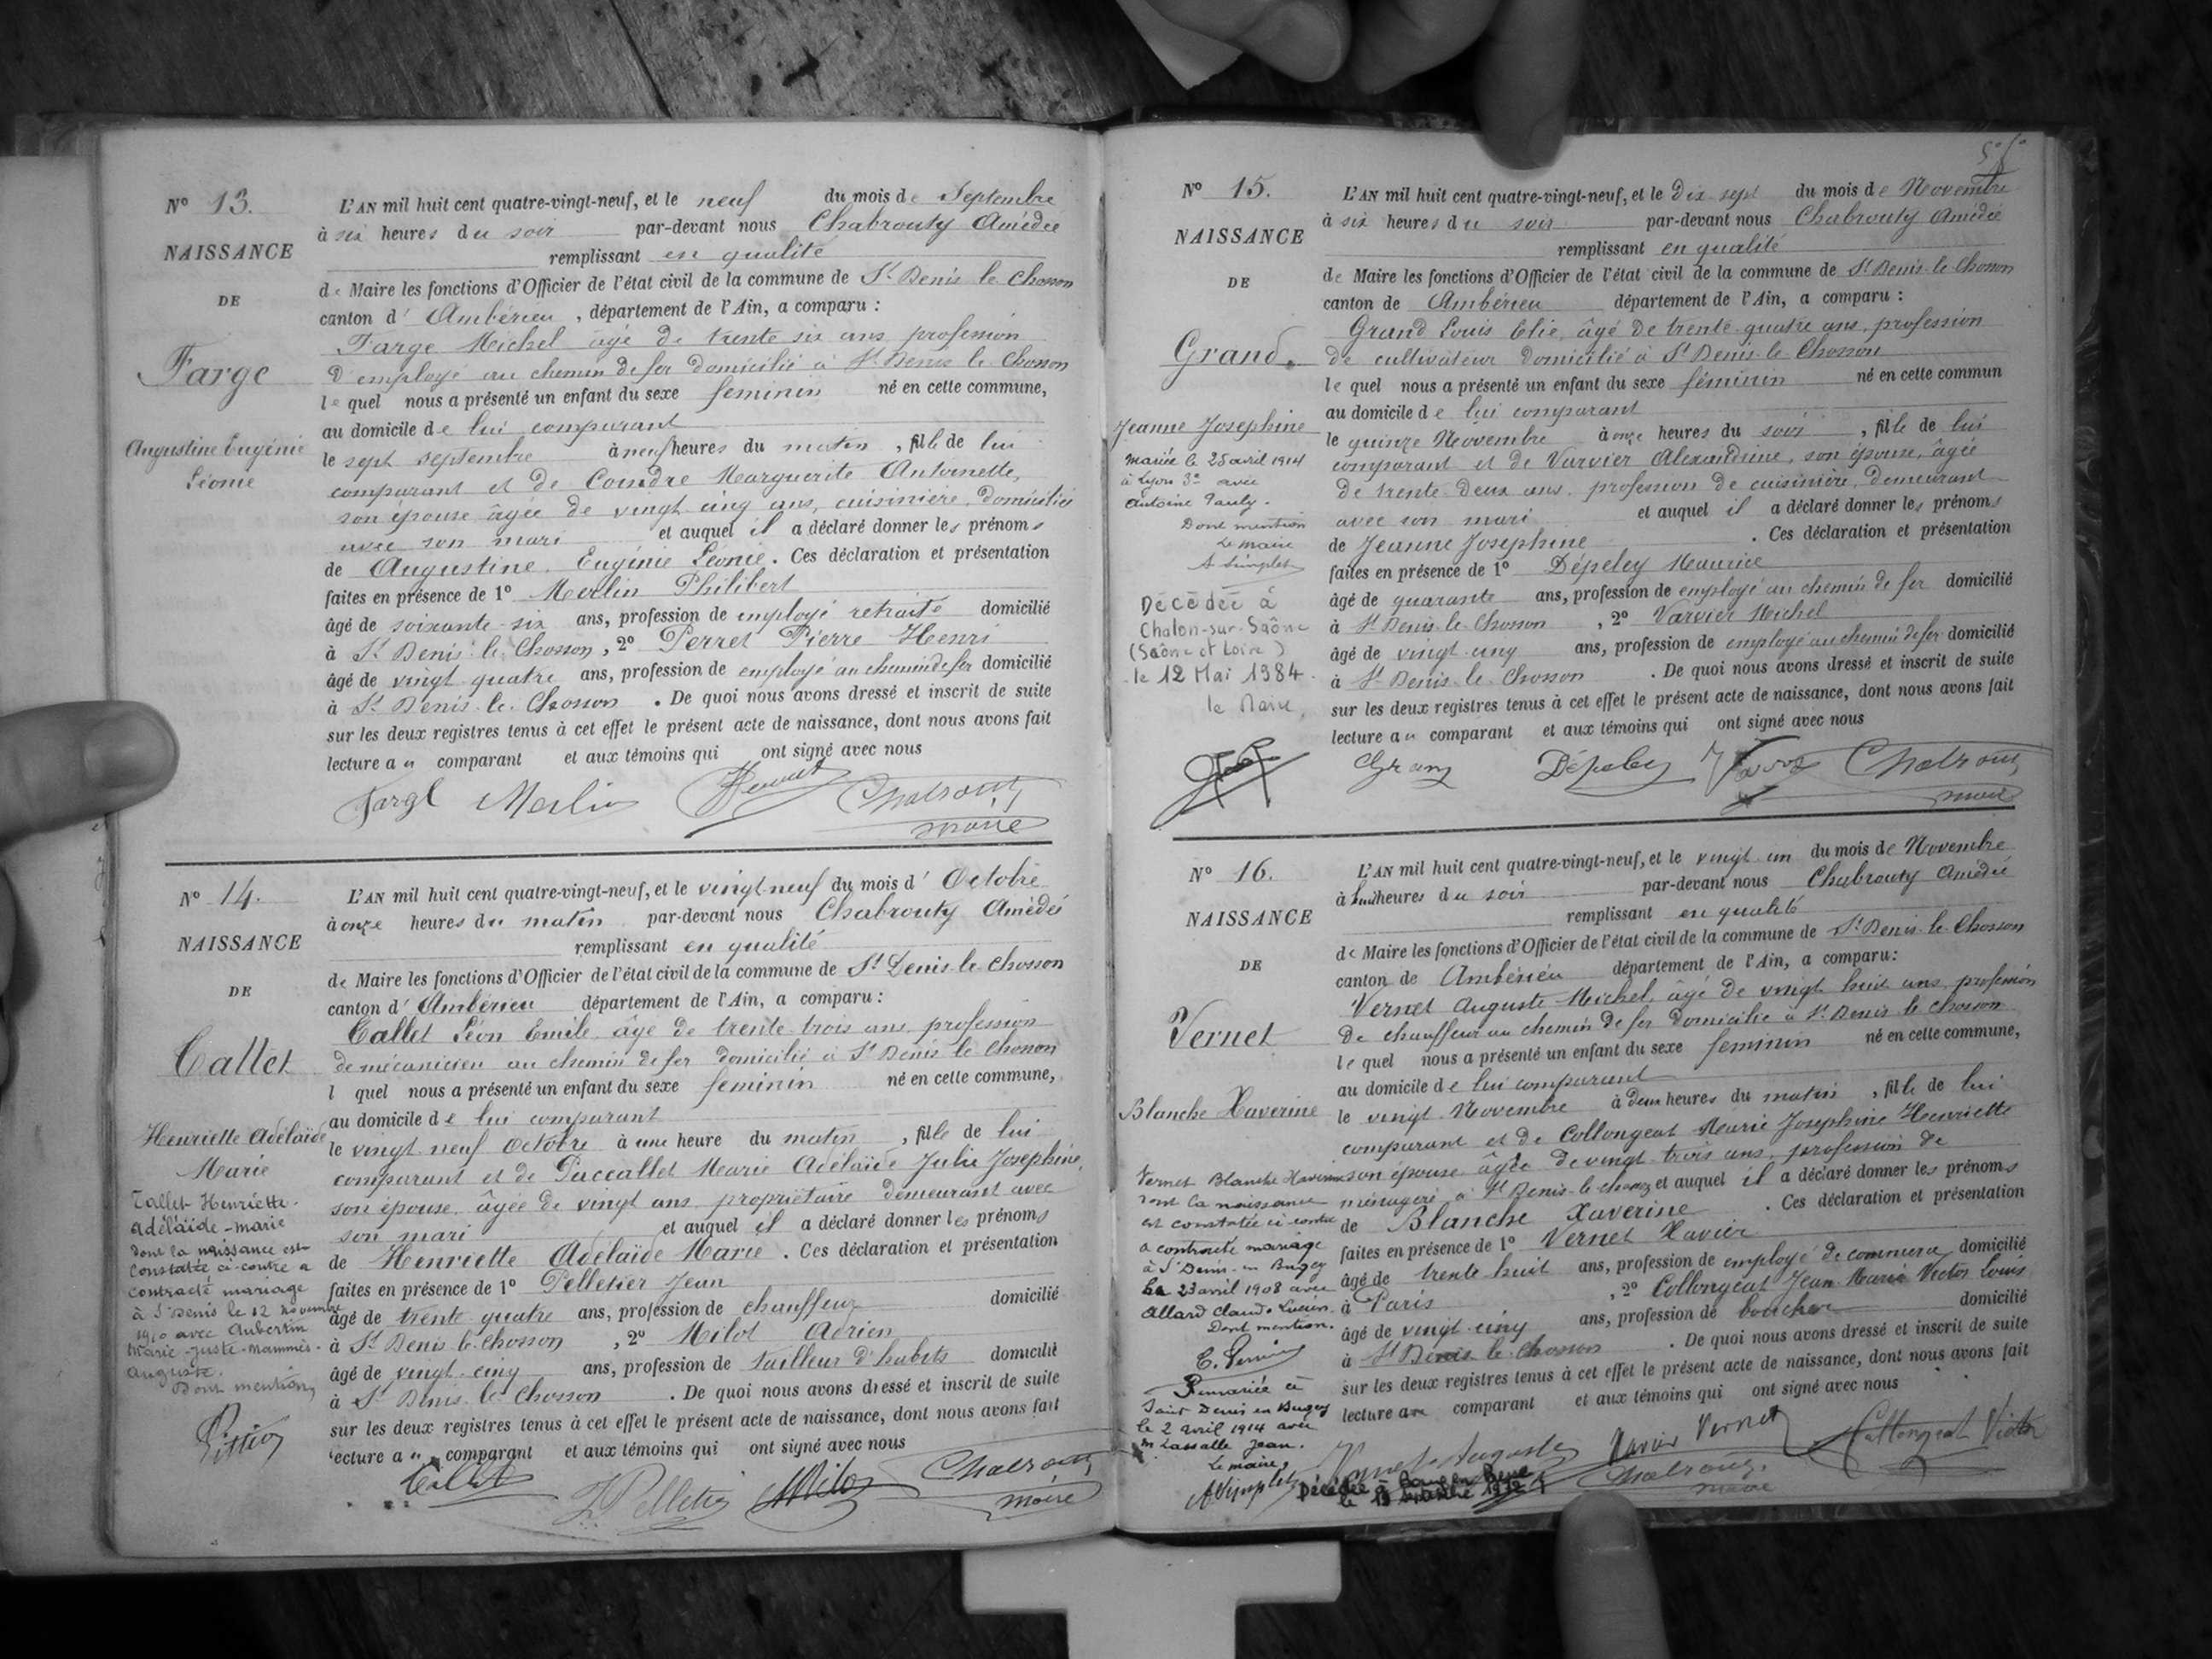 Nº 13.
NAISSANCE
DE
Farge
Augustine Eugénie
Léonie
L'AN mil huit cent quatre-vingt-neuf, et le neuf du mois de Septembre
à six heures du soir par-devant nous Chabrouty Amédée
remplissant en qualité
de Maire les fonctions d'Officier de l'état civil de la commune de St Denis le Chosson
canton d' Ambérieu, département de l'Ain, a comparu :
Farge Michel âgé de trente six ans profession
d'employé au chemin de fer domicilié à St Denis le Chosson
lequel nous a présenté un enfant du sexe feminin né en cette commune,
au domicile de lui comparant
le sept septembre à neuf heures du matin, fille de lui
comparant et de Coindre Marguerite Antoinette,
son épouse âgée de vingt cinq ans, cuisinière, domiciliée
avec son mari et auquel il a déclaré donner les prénoms
de Augustine Eugénie Léonie. Ces déclaration et présentation
faites en présence de 1º Merlin Philibert
âgé de soixante-six ans, profession de employé retraité domicilié
à St Denis le Chosson, 2º Perret Pierre Henri
âgé de vingt quatre ans, profession de employé au chemin de fer domicilié
à St Denis le Chosson. De quoi nous avons dressé et inscrit de suite
sur les deux registres tenus à cet effet le présent acte de naissance, dont nous avons fait
lecture au comparant et aux témoins qui ont signé avec nous
Farge Merlin Chabrouty
maire
Nº 14.
NAISSANCE
DE
Tallet
Henriette Adélaïde
Marie
Tallet Henriette-
adélaïde-marie
dont la naissance est
constatée ci-contre a
contracté mariage
à St Denis le 12 novembre
1910 avec Aubertin
Marie-Juste-Mammès-
auguste.
Dont mention
L'AN mil huit cent quatre-vingt-neuf, et le vingt-neuf du mois d' Octobre
à onze heures du matin par-devant nous Chabrouty Amédée
remplissant en qualité
de Maire les fonctions d'Officier de l'état civil de la commune de St Denis-le-Chosson
canton d' Ambérieu département de l'Ain, a comparu :
Tallet Léon Emile âgé de trente-trois ans, profession
de mécanicien au chemin de fer domicilié à St Denis le Chosson
l quel nous a présenté un enfant du sexe feminin né en cette commune,
au domicile de lui comparant
le vingt neuf Octobre à une heure du matin, fille de lui
comparant et de Puccallet Marie Adélaïde Julie Josephine,
son épouse, âgée de vingt ans, propriétaire demeurant avec
son mari et auquel il a déclaré donner les prénoms
de Henriette Adélaïde Marie. Ces déclaration et présentation
faites en présence de 1º Pelletier Jean
âgé de trente quatre ans, profession de chauffeur domicilié
à St Denis-le-Chosson, 2º Milot Adrien
âgé de vingt-cinq ans, profession de tailleur d'habits domicilié
à St Denis le Chosson. De quoi nous avons dressé et inscrit de suite
sur les deux registres tenus à cet effet le présent acte de naissance, dont nous avons fait
lecture au comparant et aux témoins qui ont signé avec nous
Tallet Pelletier Milot Chabrouty
maire
Nº 15.
NAISSANCE
DE
Grand.
Jeanne Josephine
mariée le 25 avril 1914
à Lyon 3e avec
Antoine Pauly.
Dont mention
Le maire
Décédée à
Chalon-sur-Saône
(Saône et Loire)
le 12 Mai 1984.
le Maire,
L'AN mil huit cent quatre-vingt-neuf, et le dix sept du mois de Novembre
à six heures du soir par-devant nous Chabrouty Amédée
remplissant en qualité
de Maire les fonctions d'Officier de l'état civil de la commune de St Denis-le-Chosson
canton de Ambérieu département de l'Ain, a comparu :
Grand Louis Elie, âgé de trente quatre ans, profession
de cultivateur domicilié à St Denis-le-Chosson
lequel nous a présenté un enfant du sexe féminin né en cette commun
au domicile de lui comparant
le quinze Novembre à onze heures du soir, fille de lui
comparant et de Varvier Alexandrine, son épouse, âgée
de trente-deux ans, profession de cuisinière, demeurant
avec son mari et auquel il a déclaré donner les prénoms
de Jeanne Josephine. Ces déclaration et présentation
faites en présence de 1º Dépeley Maurice
âgé de quarante ans, profession de employé au chemin de fer domicilié
à St Denis-le-Chosson, 2º Varvier Michel
âgé de vingt-cinq ans, profession de employé au chemin de fer domicilié
à St Denis-le-Chosson. De quoi nous avons dressé et inscrit de suite
sur les deux registres tenus à cet effet le présent acte de naissance, dont nous avons fait
lecture au comparant et aux témoins qui ont signé avec nous
Grand Dépeley Chabrouty
maire
Nº 16.
NAISSANCE
DE
Vernet
Blanche Xaverine
Vernet Blanche Xaverine
dont la naissance
est constatée ci-contre
a contracté mariage
à St Denis-en Bugey
le 23 avril 1908 avec
Allard Claude Lucien.
Dont mention.
Remariée à
Saint Denis en Bugey
le 2 avril 1914 avec
M Lassalle Jean.
Le maire,
L'AN mil huit cent quatre-vingt-neuf, et le vingt-un du mois de Novembre
à huit heures du soir par-devant nous Chabrouty Amédée
remplissant en qualité
de Maire les fonctions d'Officier de l'état civil de la commune de St Denis-le-Chosson
canton de Ambérieu département de l'Ain, a comparu:
Vernet Auguste Michel, âgé de vingt huit ans, profession
de chauffeur au chemin de fer domicilié à St Denis le Chosson
lequel nous a présenté un enfant du sexe feminin né en cette commune,
au domicile de lui comparant
le vingt Novembre à deux heures du matin, fille de lui
comparant et de Collongeat Marie Josephine Henriette
son épouse âgée de vingt-trois ans, profession de
ménagère à St Denis-le-Chosson et auquel il a déclaré donner les prénoms
de Blanche Xaverine. Ces déclaration et présentation
faites en présence de 1º Vernet Xavier
âgé de trente huit ans, profession de employé de commerce domicilié
à Paris, 2º Collongeat Jean Marie Victor Louis
âgé de vingt-cinq ans, profession de boucher domicilié
à St Denis le Chosson. De quoi nous avons dressé et inscrit de suite
sur les deux registres tenus à cet effet le présent acte de naissance, dont nous avons fait
lecture au comparant et aux témoins qui ont signé avec nous
Vernet Auguste Xavier Vernet Collongeat Victor
Chabrouty
maire
Décédée à